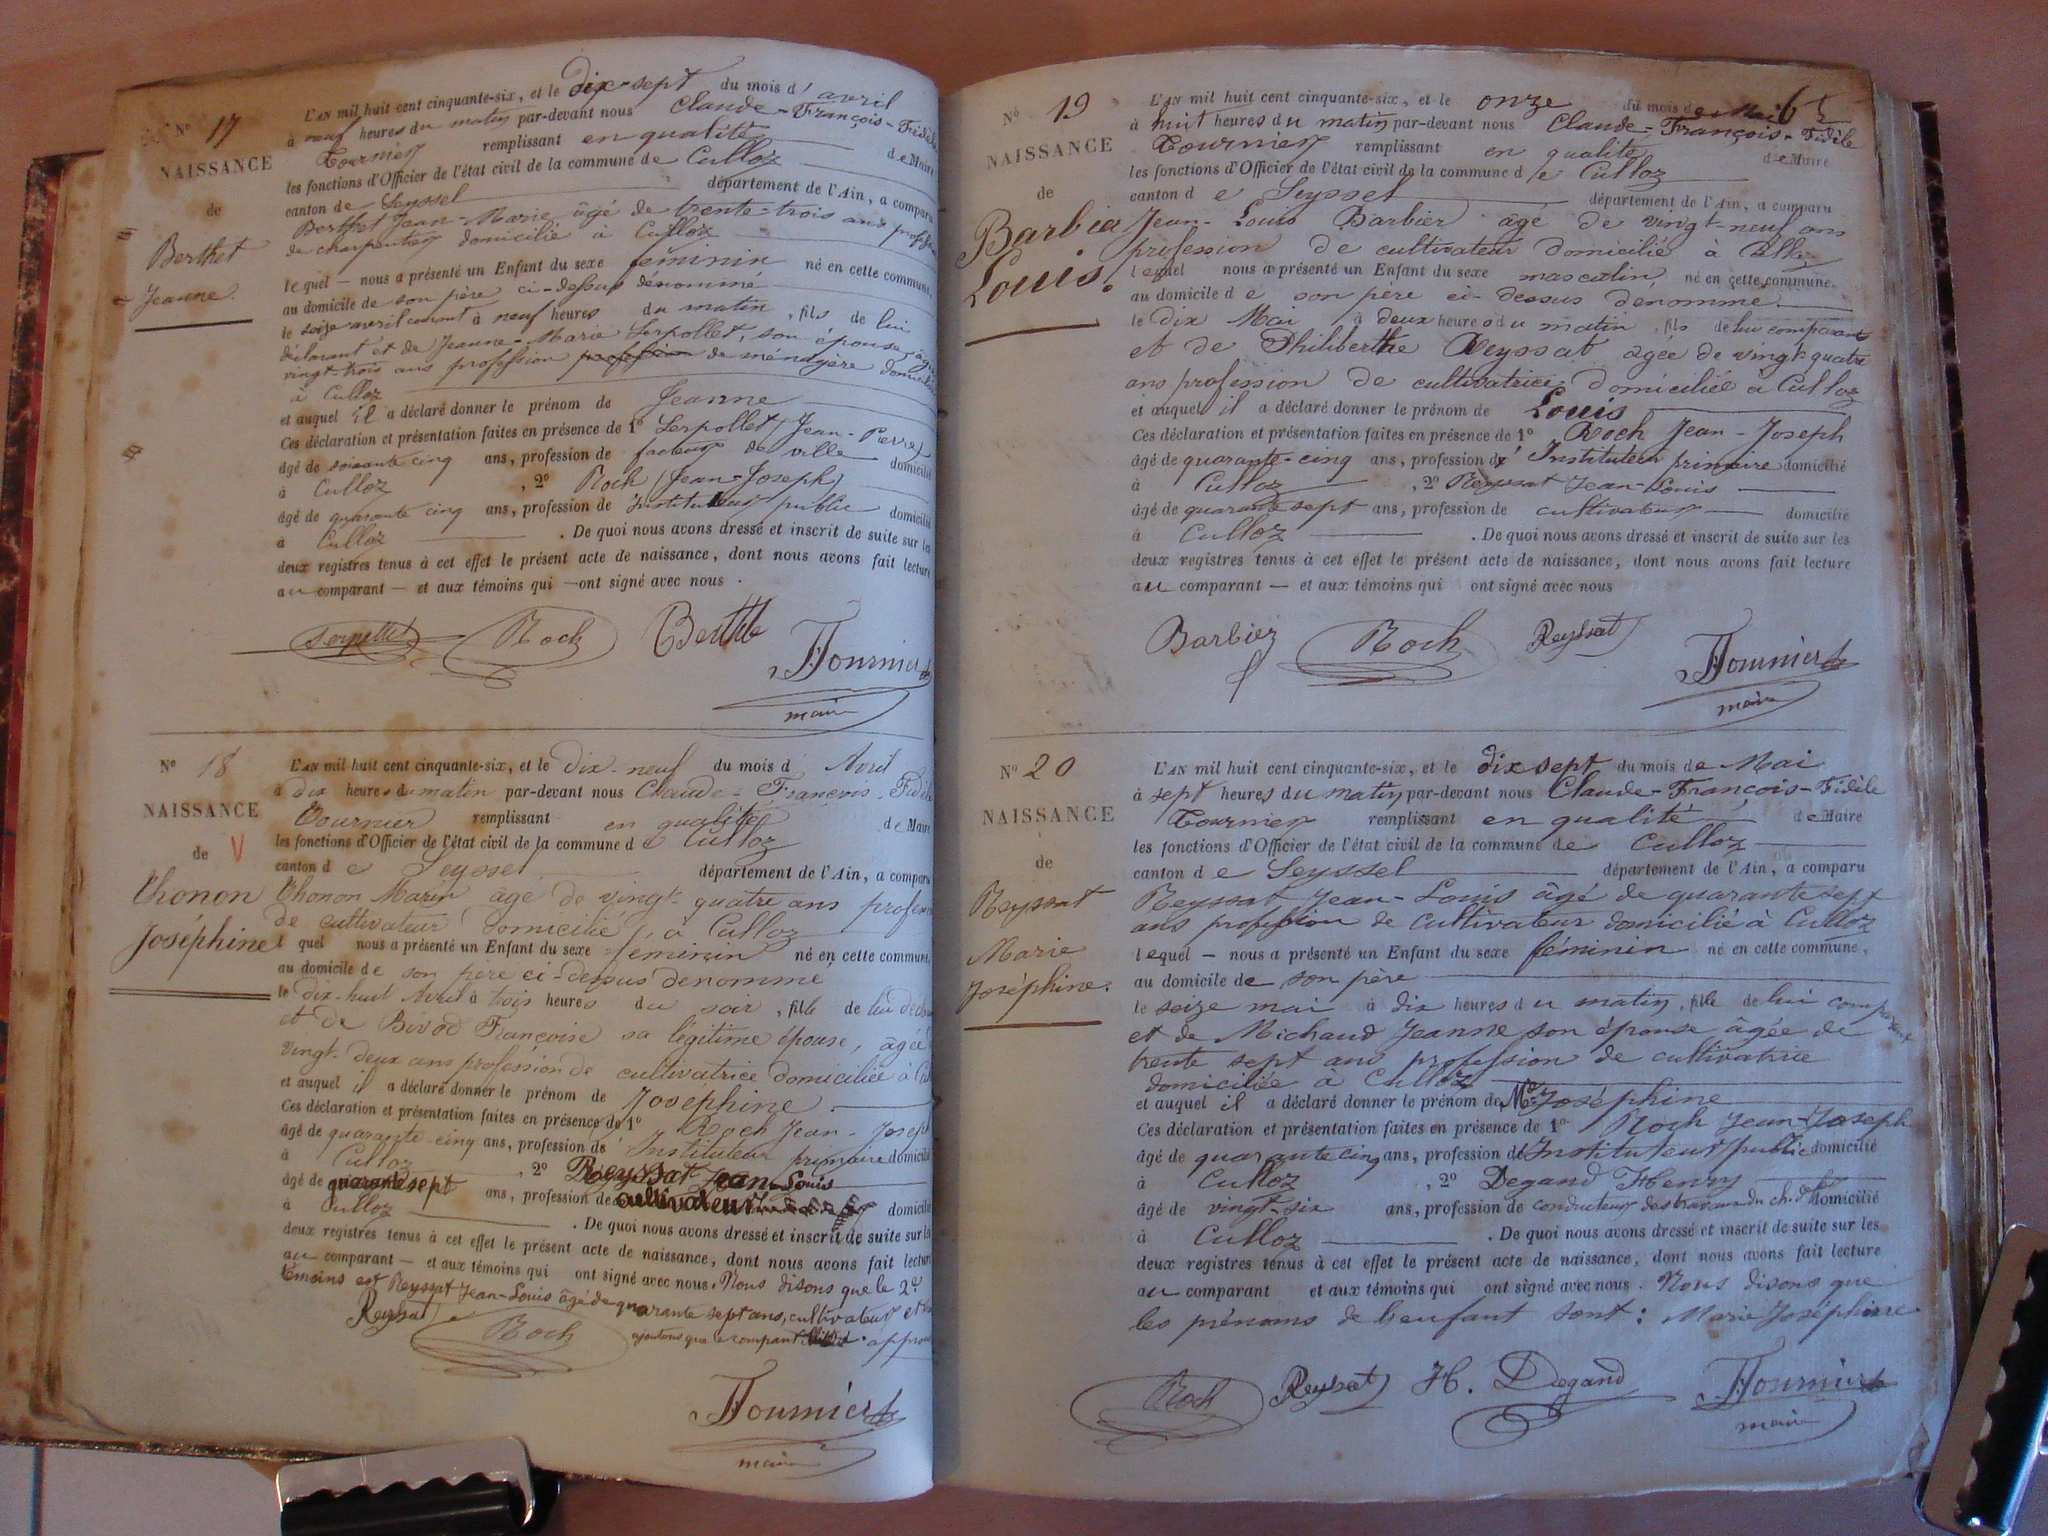 N° 17
NAISSANCE
de
Berthet
Jeanne.
L'AN mil huit cent cinquante-six, et le dix-sept du mois d'avril
à neuf heures du matin par-devant nous Claude-François-Fidèle
Tournier remplissant en qualité de Maire
les fonctions d'Officier de l'état civil de la commune de Culloz
canton de Seyssel département de l'Ain, a comparu
Berthet Jean-Marie âgé de trente-trois ans profession
de charpentier domicilié à Culloz
lequel – nous a présenté un Enfant du sexe féminin né en cette commune,
au domicile de son père ci-dessus dénommé
le seize avril courant à neuf heures du matin, fils de lui
déclarant et de Jeanne-Marie Serpollet, son épouse, âgée
vingt trois ans profession profession de ménagère domiciliée
à Culloz
et auquel il a déclaré donner le prénom de Jeanne
Ces déclaration et présentation faites en présence de 1° Serpollet (Jean-Pierre)
âgé de soixante cinq ans, profession de facteur de ville domicilié
à Culloz, 2° Roch (Jean-Joseph)
âgé de quarante cinq ans, profession de Instituteur public domicilié
à Culloz. De quoi nous avons dressé et inscrit de suite sur les
deux registres tenus à cet effet le présent acte de naissance, dont nous avons fait lecture
au comparant – et aux témoins qui – ont signé avec nous.
Serpollet Roch Berthet
Tournier
maire
N° 18
NAISSANCE
de V
Thonon
Joséphine
L'AN mil huit cent cinquante-six, et le dix-neuf du mois d Avril
à dix heures du matin par-devant nous Claude-François-Fidèle
Tournier remplissant en qualité de Maire
les fonctions d'Officier de l'état civil de la commune de Culloz
canton de Seyssel département de l'Ain, a comparu
Thonon Marin âgé de vingt-quatre ans profession
de cultivateur domicilié à Culloz
lequel nous a présenté un Enfant du sexe féminin né en cette commune,
au domicile de son père ci-dessus dénommé
le dix-huit Avril à trois heures du soir, fille de lui
et de Françoise sa légitime épouse, âgée
vingt-deux ans profession de cultivatrice domiciliée à
et auquel il a déclaré donner le prénom de Joséphine
Ces déclaration et présentation faites en présence de 1° Roch Jean-Joseph
âgé de quarante-cinq ans, profession de Instituteur primaire domicilié
à Culloz, 2° Reyssat Jean-Louis
âgé de quarante sept ans, profession de cultivateur domicilié
à Culloz. De quoi nous avons dressé et inscrit de suite sur les
deux registres tenus à cet effet le présent acte de naissance, dont nous avons fait lecture
au comparant – et aux témoins qui ont signé avec nous. Nous disons que le 2e
témoins est Reyssat Jean-Louis âgé de quarante sept ans, cultivateur et
Reyssat Roch ajoutons que le compant
Tournier
maire
N° 19
NAISSANCE
de
Barbier
Louis.
L'AN mil huit cent cinquante-six, et le onze du mois de Mai
à huit heures du matin par-devant nous Claude-François-Fidèle
Tournier remplissant en qualité de Maire
les fonctions d'Officier de l'état civil de la commune de Culloz
canton de Seyssel département de l'Ain, a comparu
Jean-Louis Barbier âgé de vingt-neuf ans
profession de cultivateur domicilié à Culloz
lequel nous a présenté un Enfant du sexe masculin, né en cette commune,
au domicile de son père ci-dessus dénommé.
le dix Mai à deux heures du matin, fils de lui comparant
et de Philiberthe Reyssat âgée de vingt-quatre
ans profession de cultivatrice domiciliée à Culloz
et auquel il a déclaré donner le prénom de Louis
Ces déclaration et présentation faites en présence de 1° Roch Jean-Joseph
âgé de quarante-cinq ans, profession d'Instituteur primaire domicilié
à Culloz, 2° Reyssat Jean-Louis
âgé de quarante sept ans, profession de cultivateur domicilié
à Culloz. De quoi nous avons dressé et inscrit de suite sur les
deux registres tenus à cet effet le présent acte de naissance, dont nous avons fait lecture
au comparant – et aux témoins qui ont signé avec nous
Barbier Roch Reyssat
Tournier
maire
N° 20
NAISSANCE
de
Reyssat
Marie
Joséphine.
L'AN mil huit cent cinquante-six, et le dix sept du mois de Mai
à sept heures du matin par-devant nous Claude-François-Fidèle
Tournier remplissant en qualité de Maire
les fonctions d'Officier de l'état civil de la commune de Culloz
canton de Seyssel département de l'Ain, a comparu
Reyssat Jean-Louis âgé de quarante sept
ans profession de cultivateur domicilié à Culloz
lequel – nous a présenté un Enfant du sexe féminin né en cette commune,
au domicile de son père
le seize mai à dix heures du matin, fille de lui comparant
et de Michaud Jeanne son épouse âgée de
trente sept ans profession de cultivatrice
domiciliée à Culloz
et auquel il a déclaré donner le prénom de Me Joséphine
Ces déclaration et présentation faites en présence de 1° Roch Jean-Joseph
âgé de quarante cinq ans, profession d'Instituteur public domicilié
à Culloz, 2° Degand Henry
âgé de vingt-six ans, profession de conducteur des travaux du ch. de f. domicilié
à Culloz. De quoi nous avons dressé et inscrit de suite sur les
deux registres tenus à cet effet le présent acte de naissance, dont nous avons fait lecture
au comparant et aux témoins qui ont signé avec nous. Nous disons que
les prénoms de l'enfant sont: Marie Joséphine.
Roch Reyssat H. Degand Tournier
maire